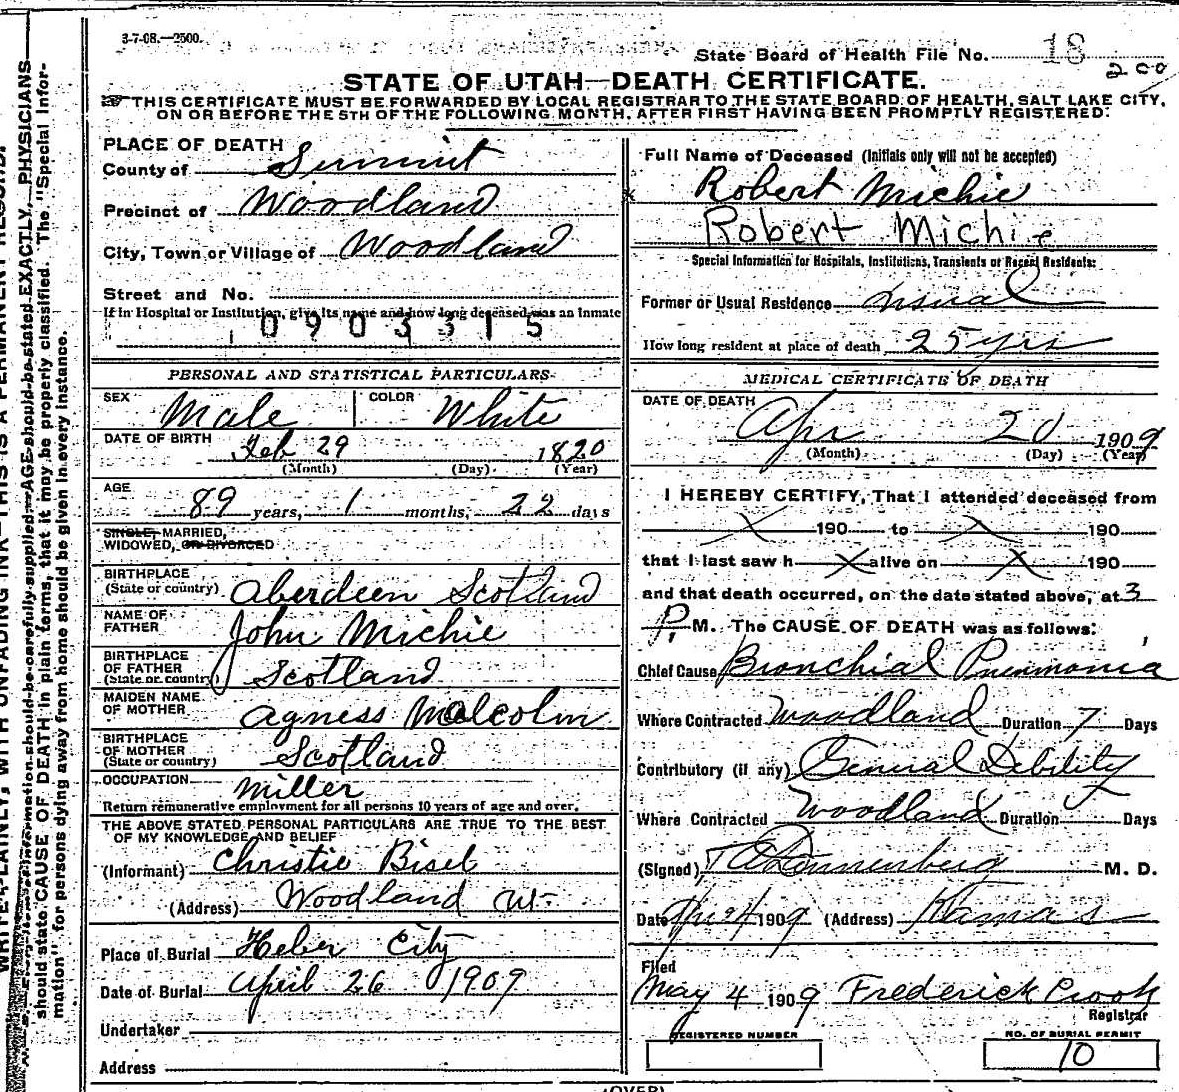 3-7-08.—2500.
State Board of Health File No. 18
200
STATE OF UTAH—DEATH CERTIFICATE.
THIS CERTIFICATE MUST BE FORWARDED BY LOCAL REGISTRAR TO THE STATE BOARD OF HEALTH, SALT LAKE CITY,
ON OR BEFORE THE 5TH OF THE FOLLOWING MONTH, AFTER FIRST HAVING BEEN PROMPTLY REGISTERED.
PLACE OF DEATH
County of Summit
Precinct of Woodland
City, Town or Village of Woodland
Street and No.
If in Hospital or Institution, give its name and how long deceased was an inmate
0903315
PERSONAL AND STATISTICAL PARTICULARS
SEX Male COLOR White
DATE OF BIRTH Feb 29 1820
(Month) (Day) (Year)
AGE 89 years, 1 months, 22 days
SINGLE, MARRIED,
WIDOWED, OR DIVORCED
BIRTHPLACE
(State or country) Aberdeen Scotland
NAME OF
FATHER John Michie
BIRTHPLACE
OF FATHER
(State or country) Scotland
MAIDEN NAME
OF MOTHER Agness Malcolm
BIRTHPLACE
OF MOTHER
(State or country) Scotland
OCCUPATION miller
Return remunerative employment for all persons 10 years of age and over.
THE ABOVE STATED PERSONAL PARTICULARS ARE TRUE TO THE BEST
OF MY KNOWLEDGE AND BELIEF
(Informant) Christie Bisel
(Address) Woodland Ut.
Place of Burial Heber City
Date of Burial April 26 1909
Undertaker
Address
Full Name of Deceased (Initials only will not be accepted)
Robert Michie
Robert Michie
Special Information for Hospitals, Institutions, Transients or Recent Residents:
Former or Usual Residence usual
How long resident at place of death 25 yrs
MEDICAL CERTIFICATE OF DEATH
DATE OF DEATH
Apr 20 1909
(Month) (Day) (Year)
I HEREBY CERTIFY, That I attended deceased from
X 190 to X 190
that I last saw h X alive on X 190
and that death occurred, on the date stated above, at 3
P. M. The CAUSE OF DEATH was as follows:
Chief Cause Bronchial Pneumonia
Where Contracted Woodland Duration 7 Days
Contributory (if any) General Debility
Where Contracted Woodland Duration Days
(Signed) M. D.
Date 1909 (Address) Kamas
Filed
May 4 1909 Frederick Crook
Registrar
REGISTERED NUMBER
NO. OF BURIAL PERMIT
10
(OVER)
should state CAUSE OF DEATH in plain terms, that it may be properly classified. The "Special Infor-
mation" for persons dying away from home should be given in every instance.